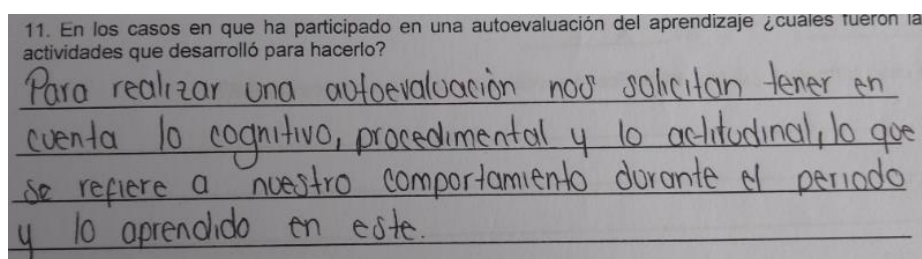 11. En los casos en que ha participado en una autoevaluación del aprendizaje ¿cuales fueron la
actividades que desarrolló para hacerlo?
Para realizar una autoevaluación nos solicitan tener en
cuenta lo cognitivo, procedimental y lo actitudinal, lo que
se refiere a nuestro comportamiento durante el periodo
y lo aprendido en este.